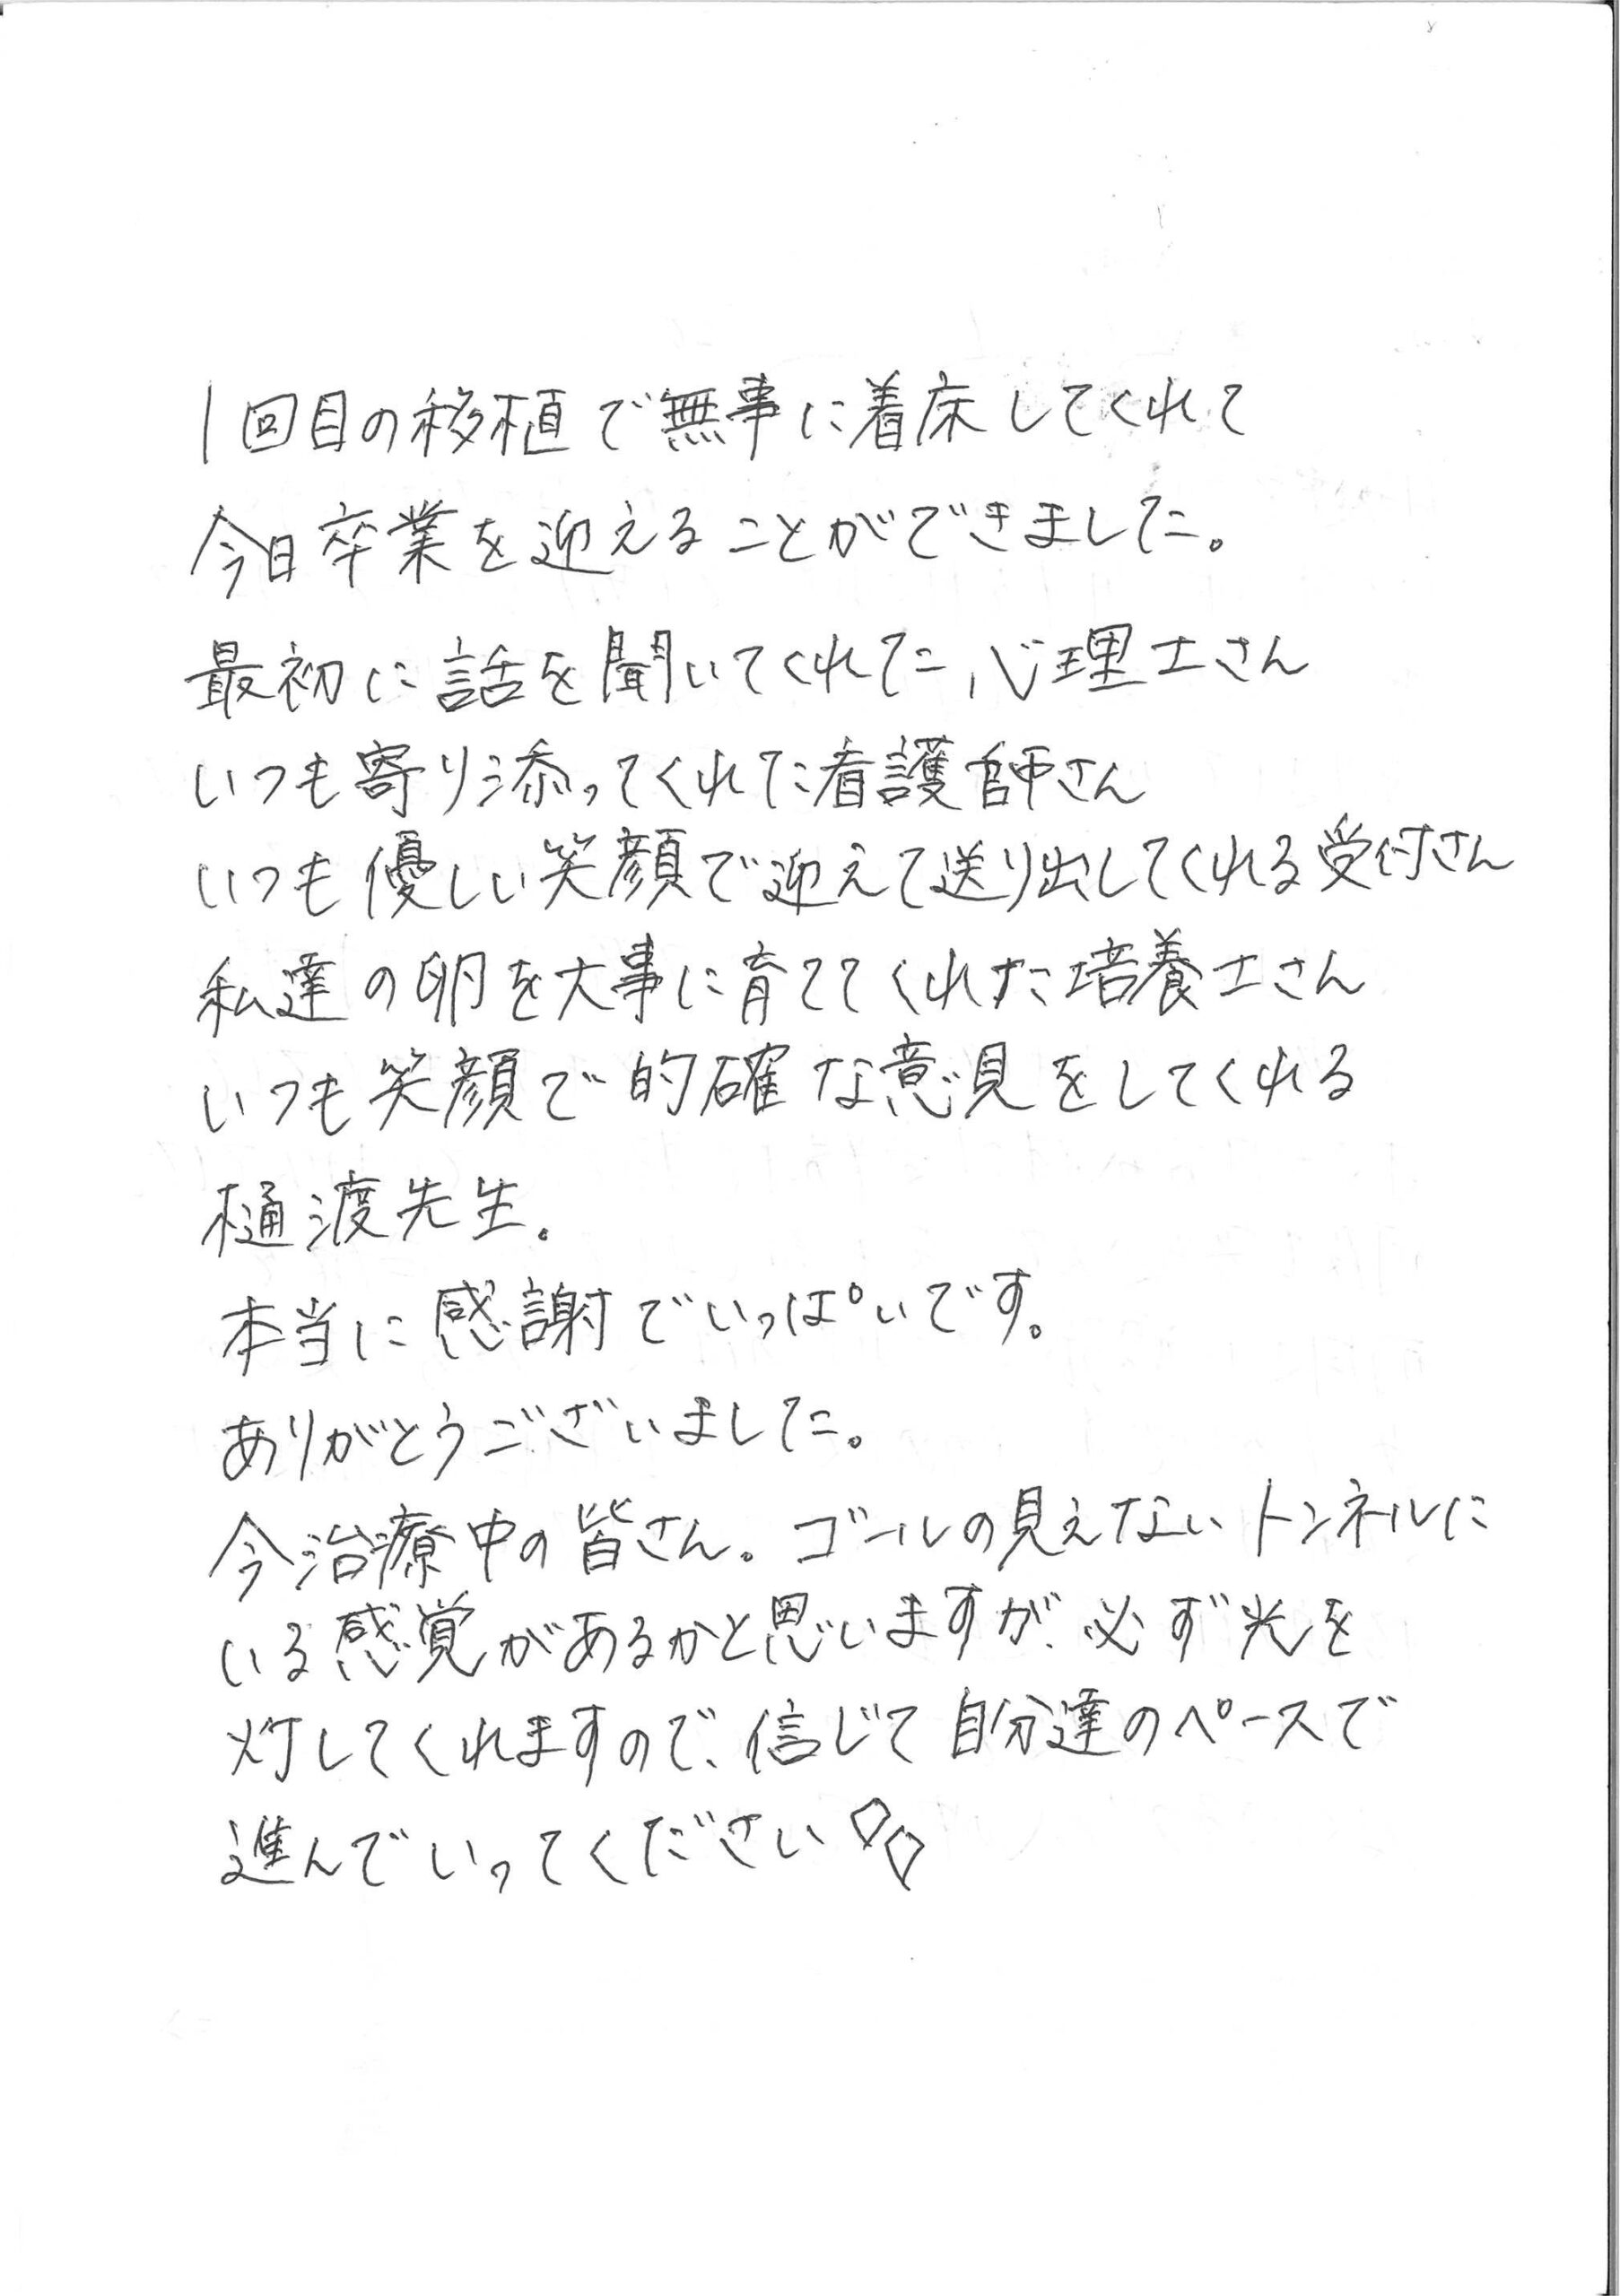 1回目の移植で無事に着床してくれて
今日卒業を迎えることができました。
最初に話を聞いてくれた心理士さん
いつも寄り添ってくれた看護師さん
いつも優しい笑顔で迎えて送り出してくれる受付さん
私達の卵を大事に育ててくれた培養士さん
いつも笑顔で的確な意見をしてくれる
樋渡先生。
本当に感謝でいっぱいです。
ありがとうございました。
今治療中の皆さん。ゴールの見えないトンネルに
いる感覚があるかと思いますが、必ず光を
灯してくれますので、信じて自分達のペースで
進んでいってください